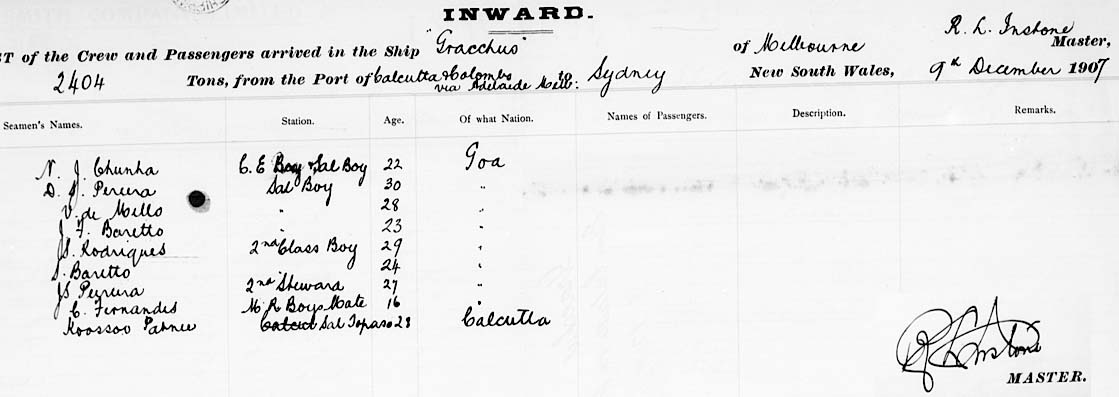 INWARD.
ST of the Crew and Passengers arrived in the Ship "Gracchus" of Melbourne R. L. Instone Master,
2404 Tons, from the Port of Calcutta & Colombo via Adelaide Melb: to Sydney New South Wales, 9th December 1907
Seamen's Names. Station. Age. Of what Nation. Names of Passengers. Description. Remarks.
N. J. Chunha C. E Boy & Sal Boy 22 Goa
D. J. Pereira Sal Boy 30 "
V. de Mello " 28 "
J. F. Baretto 23 "
JS. Rodriques 2nd Class Boy 29 "
S. Baretto 24 "
JS Pereira 2nd Steward 27 "
C. Fernandes M. R Boys Mate 16 "
Koossoo Sal Topaso 28 Calcutta
R L Instone
MASTER.